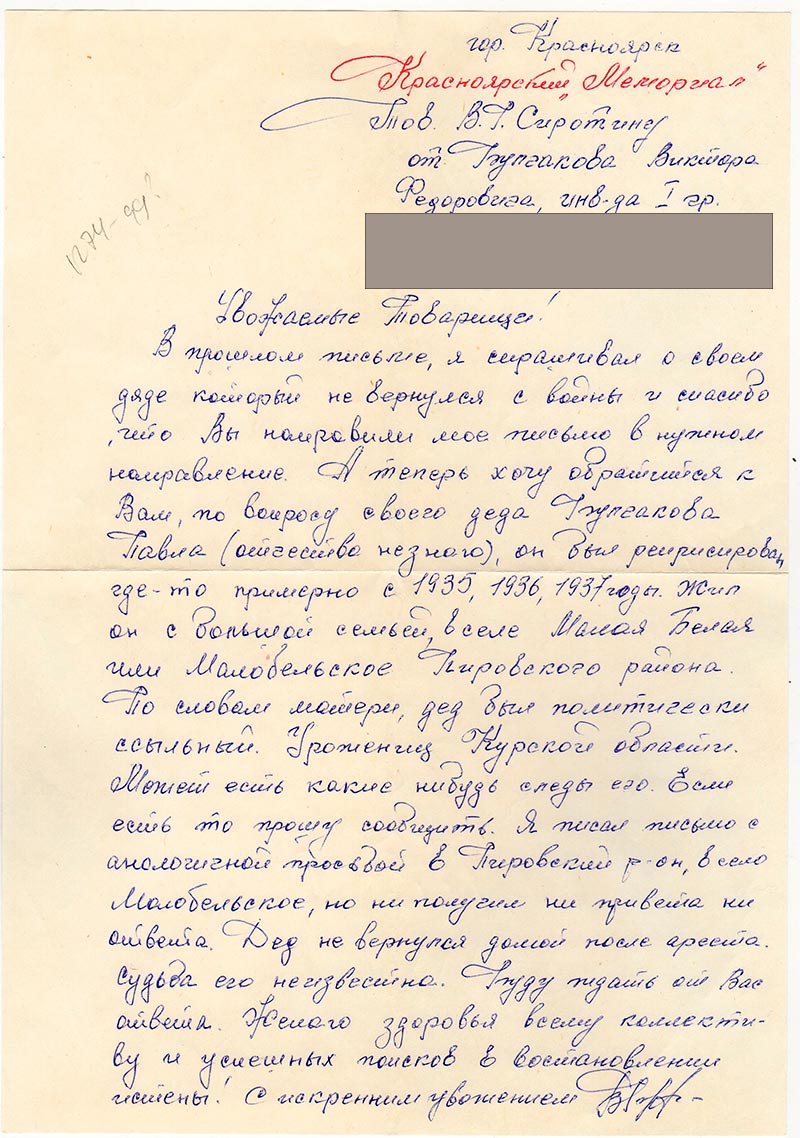 гор. Красноярск
Красноярский „Мемориал“
Тов. В.Г. Сиротину
от Булгакова Виктора
Федоровича, инв-да I гр.
1274-99г
Уважаемые Товарищи!
В прошлом письме, я спрашивал о своем
дяде который не вернулся с войны и спасибо
, что Вы направили мое письмо в нужном
направление. А теперь хочу обратится к
Вам, по вопросу своего деда Булгакова
Павла (отчества не знаю), он был реприсирован
где-то примерно с 1935, 1936, 1937 годы. Жил
он с большой семьей, в селе Малая Белая
или Малобельское Пировского района.
По словам матери, дед был политически
ссыльный. Уроженец Курской области.
Может есть какие нибудь следы его. Если
есть то прошу сообщить. Я писал письмо с
анологичной просьбой в Пировский р-он, в село
Малобельское, но ни получил ни привета ни
ответа. Дед не вернулся домой после ареста.
Судьба его неизвестна. Буду ждать от Вас
ответа. Желаю здоровья всему коллекти-
ву и успешных поисков в востановлении
истены! С искренним уважением